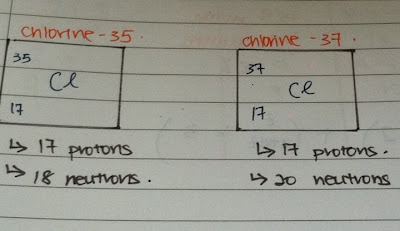 chlorine - 35.
35
Cl
17
↳ 17 protons
↳ 18 neutrons.
chlorine - 37.
37
Cl
17
↳ 17 protons.
↳ 20 neutrons